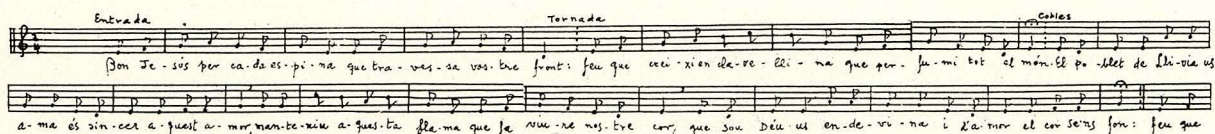 Entrada Tornada Cobles
Bon Je-sús per ca-da es-pi-na que tra-ves-sa vos-tre front: feu que crei-xi en cla-ve-lli-na que per-fu-mi tot el món. El po-blet de Llí-via us
a-ma és sin-cer a-quest a-mor, man-te-niu a-ques-ta fla-ma que fa viu-re nos-tre cor, que sou Déu us en-de-vi-na i d'a-mor el cor se'ns fon: feu que